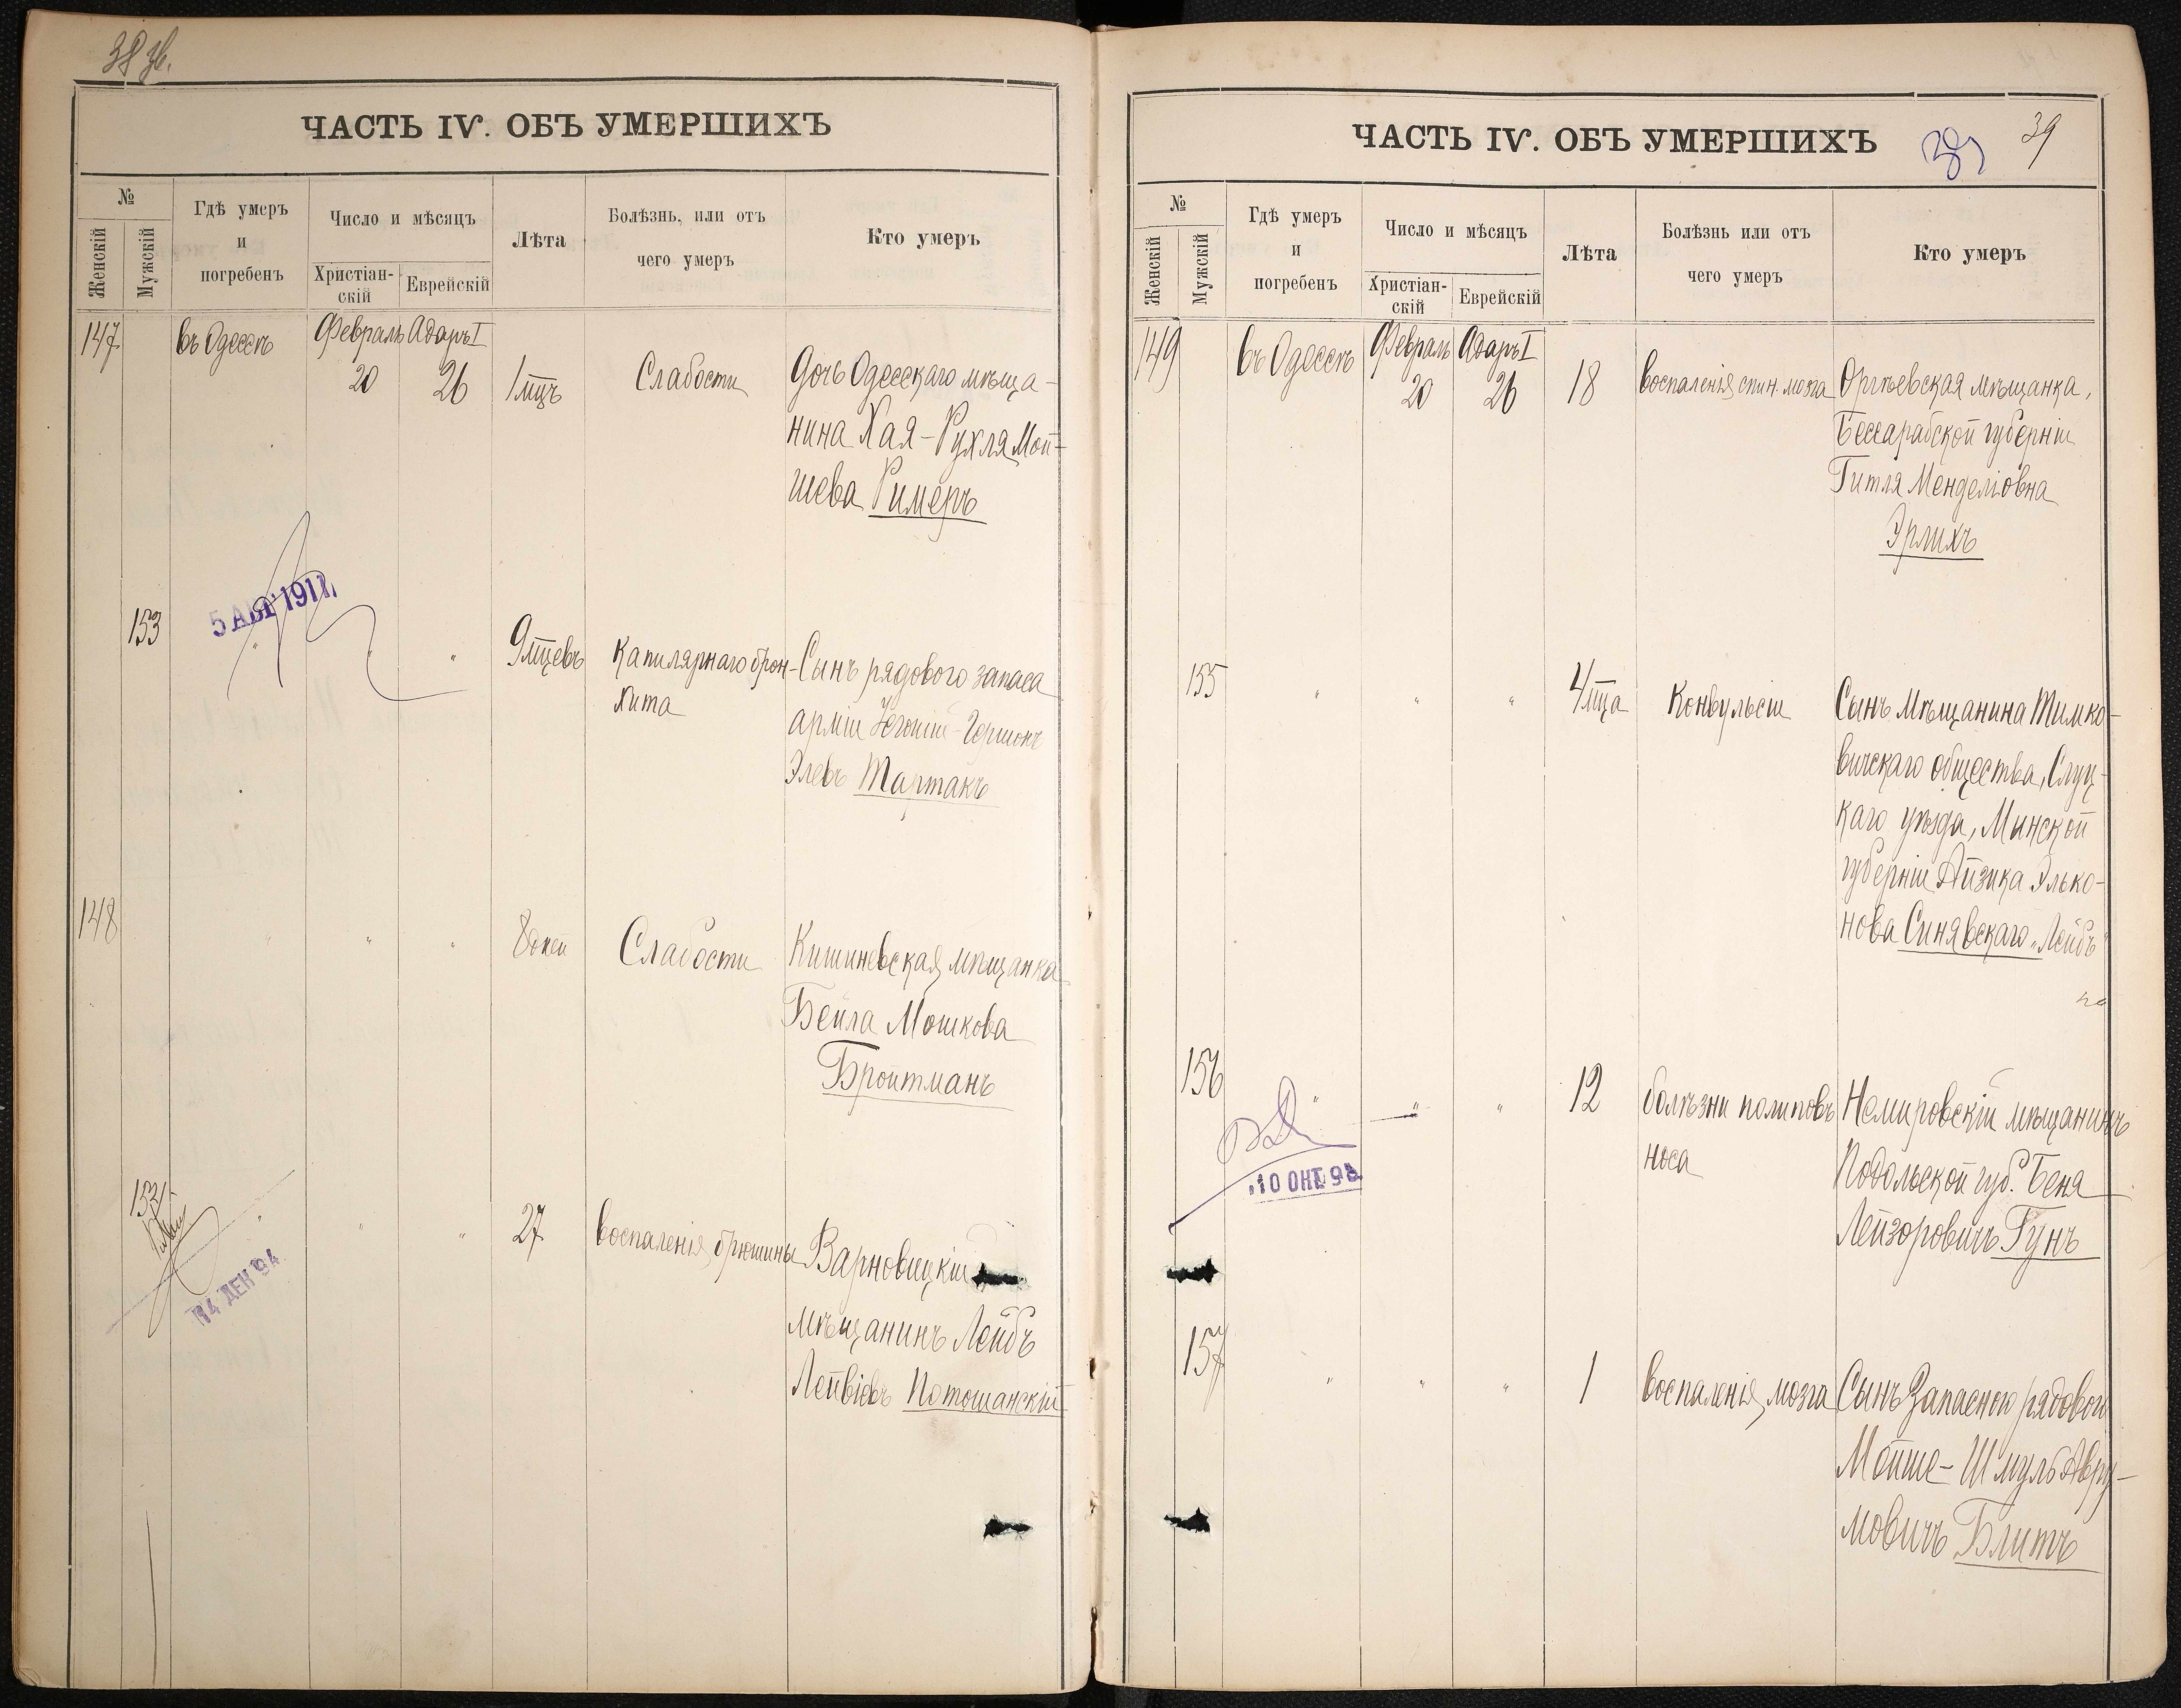 38 об.
ЧАСТЬ IV. ОБЪ УМЕРШИХЪ
№
Женскій
Мужскій
Гдѣ умеръ
и
погребенъ
Число и мѣсяцъ
Христіан-
скій
Еврейскій
Лѣта
Болѣзнь, или отъ
чего умеръ
Кто умеръ
147
въ Одессѣ
Февраль
20
Адаръ I
26
1 мцъ
Слабости
Дочь Одесскаго мѣща-
нина Хая-Рухля Мой-
шева Римеръ
5 АВГ 1911
153
"
"
"
9 мцевъ
Капилярнаго брон-
хита
Сынъ рядового запаса
арміи Гершонъ
Элевъ Тартакъ
148
"
"
"
8 дней
Слабости
Кишиневская мѣщанка
Бейла Мошкова
Бройтманъ
154
14 ДЕК 94
"
"
"
27
воспаленія брюшины
Варновицкій
мѣщанинъ Лейбъ
Лейвіевъ Потошанскій
ЧАСТЬ IV. ОБЪ УМЕРШИХЪ
39
№
Женскій
Мужскій
Гдѣ умеръ
и
погребенъ
Число и мѣсяцъ
Христіан-
скій
Еврейскій
Лѣта
Болѣзнь или отъ
чего умеръ
Кто умеръ
149
въ Одессѣ
Февраль
20
Адаръ I
26
18
воспаленія спин. мозга
Оргѣевская мѣщанка,
Бессарабской губерніи
Гитля Менделіовна
Эрлихъ
155
"
"
"
4 мца
Конвульсіи
Сынъ мѣщанина Тимко-
вичскаго общества, Слуц-
каго уѣзда, Минской
губерніи Айзика Элько-
нова Синявскаго "Лейбъ"
156
"
"
"
12
болѣзни полиповъ
носа
Немировскій мѣщанинъ
Подольской губ. Беня
Лейзоровичъ Гунъ
10 ОКТ 98
157
"
"
"
1
воспаленія мозга
Сынъ Запаснаго рядового
Мойше-Шмуль Авру-
мовичъ Блитъ